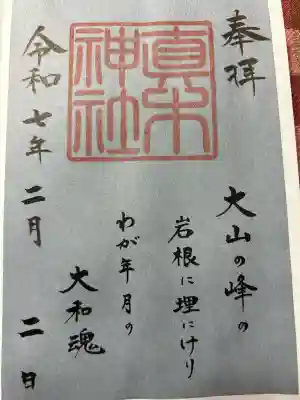 奉拝
真木
神社
大山の峰の
岩根に埋にけり
わが年月の
大和魂
令和七年二月二日